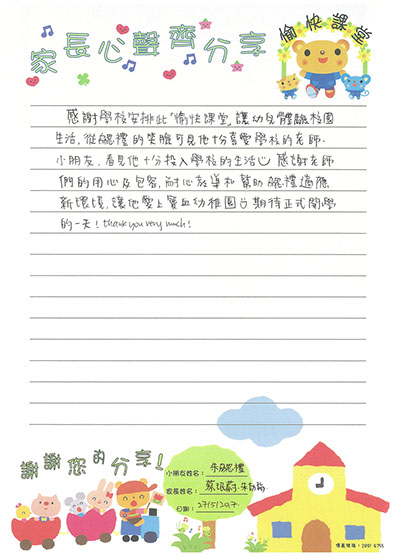 家長心聲齊分享
愉快課堂
感謝學校安排此「愉快課堂」，讓幼兒體驗校園
生活，從鎴禮的笑臉可見他十分喜愛學校的老師、
小朋友，看見他十分投入學校的生活☺ 感謝老師
們的用心及包容、耐心教導和幫助 禮適應
新環境，讓他愛上寶血幼稚園☺期待正式開學
的一天！thank you very much!
謝謝您的分享！
小朋友姓名： 朱 禮
家長姓名：
日期： 27/5/2017